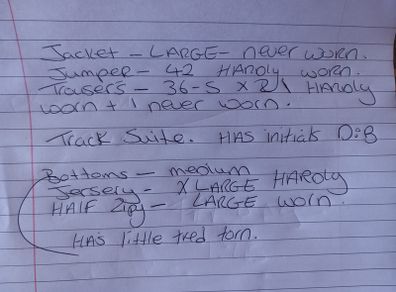 Jacket - LARGE - never worn.
Jumper - 42 HARDLY worn.
Trousers - 36-S x 2 \ HARDLY
worn + 1 never worn.
Track Suite. HAS initials D:B
Bottoms - medium
Jersery - X LARGE HARDLY
HALF Zip - LARGE worn.
HAS little tred torn.